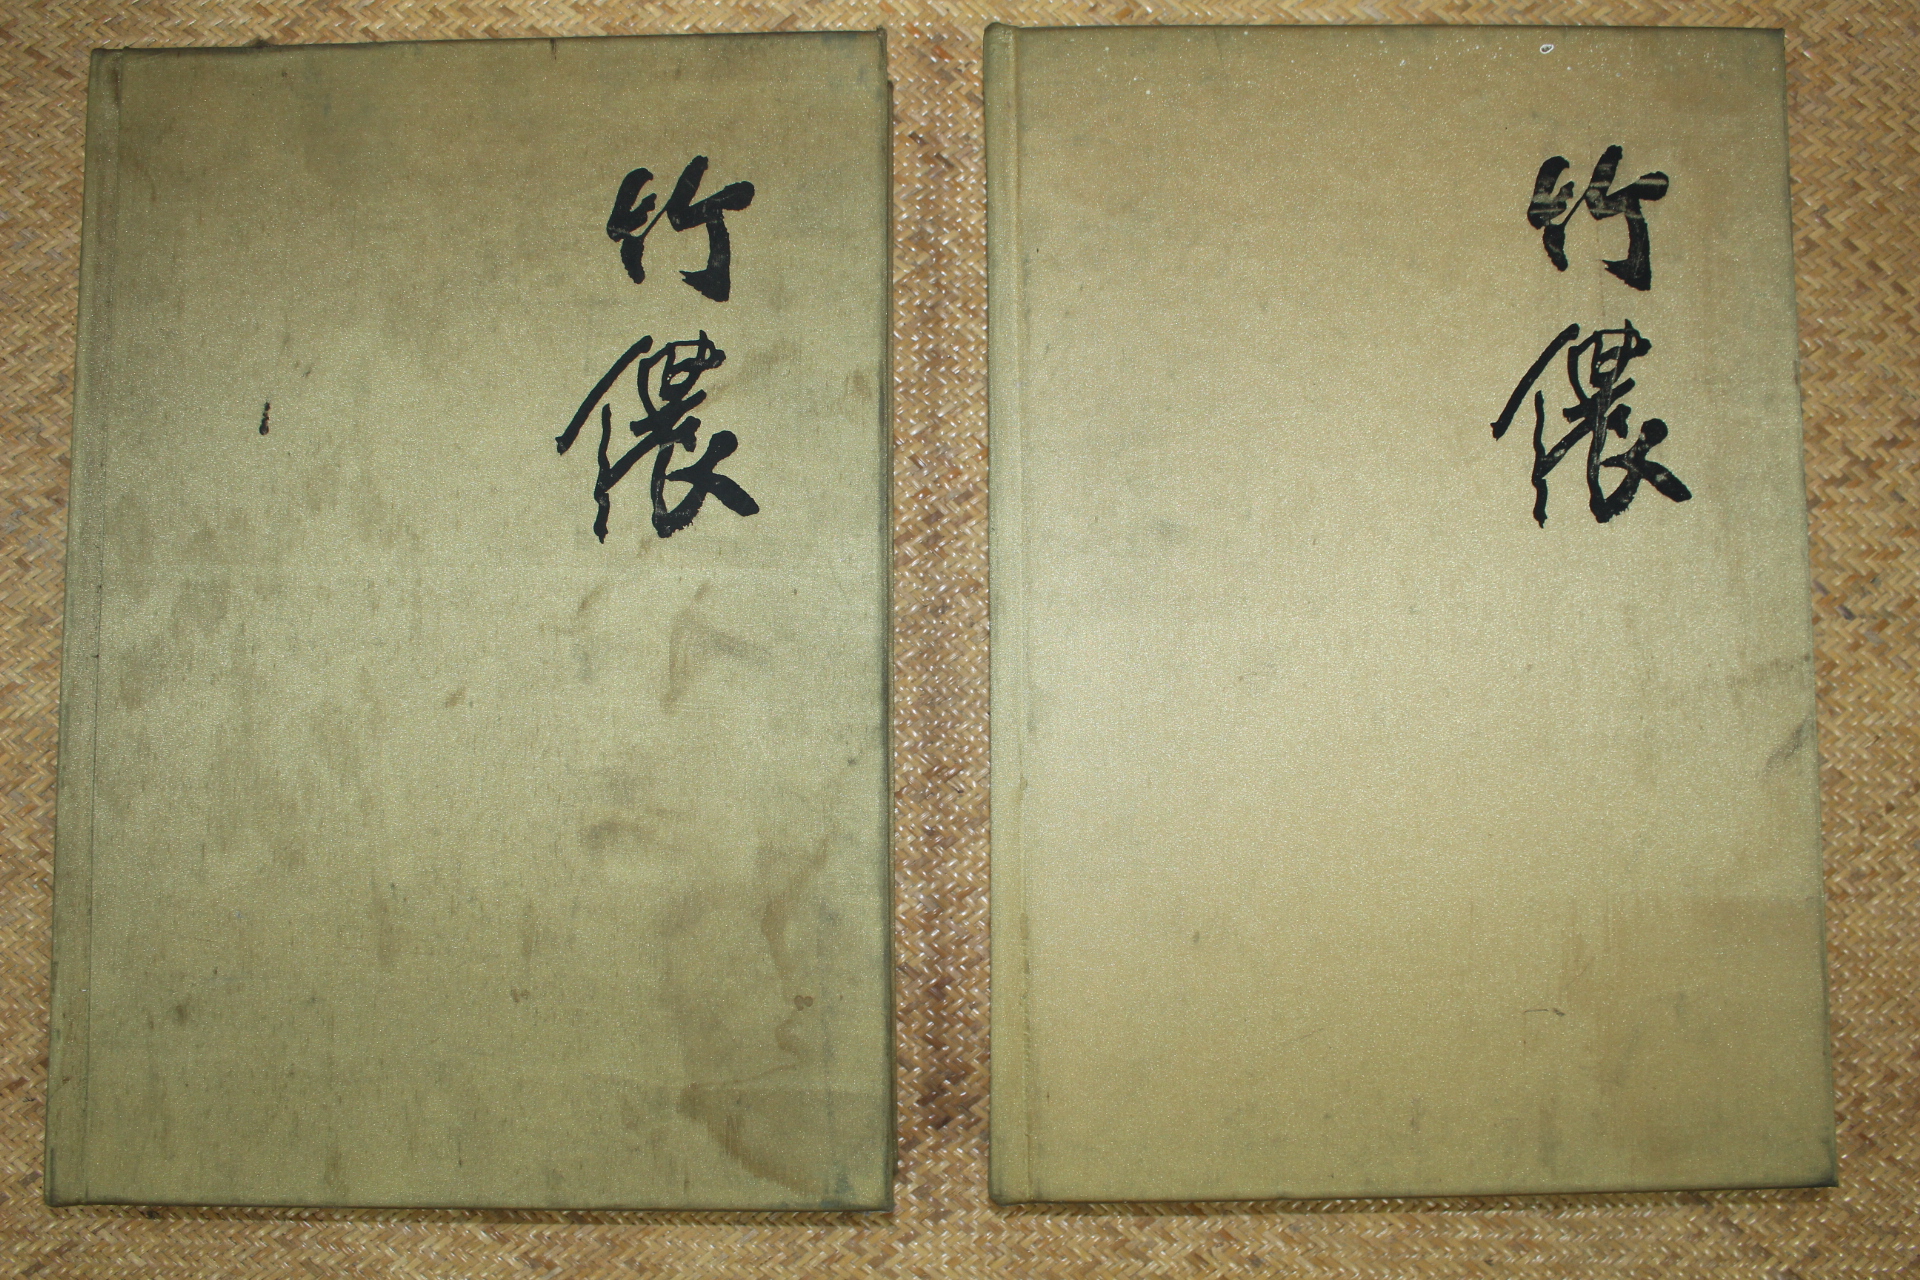 竹儂
竹儂